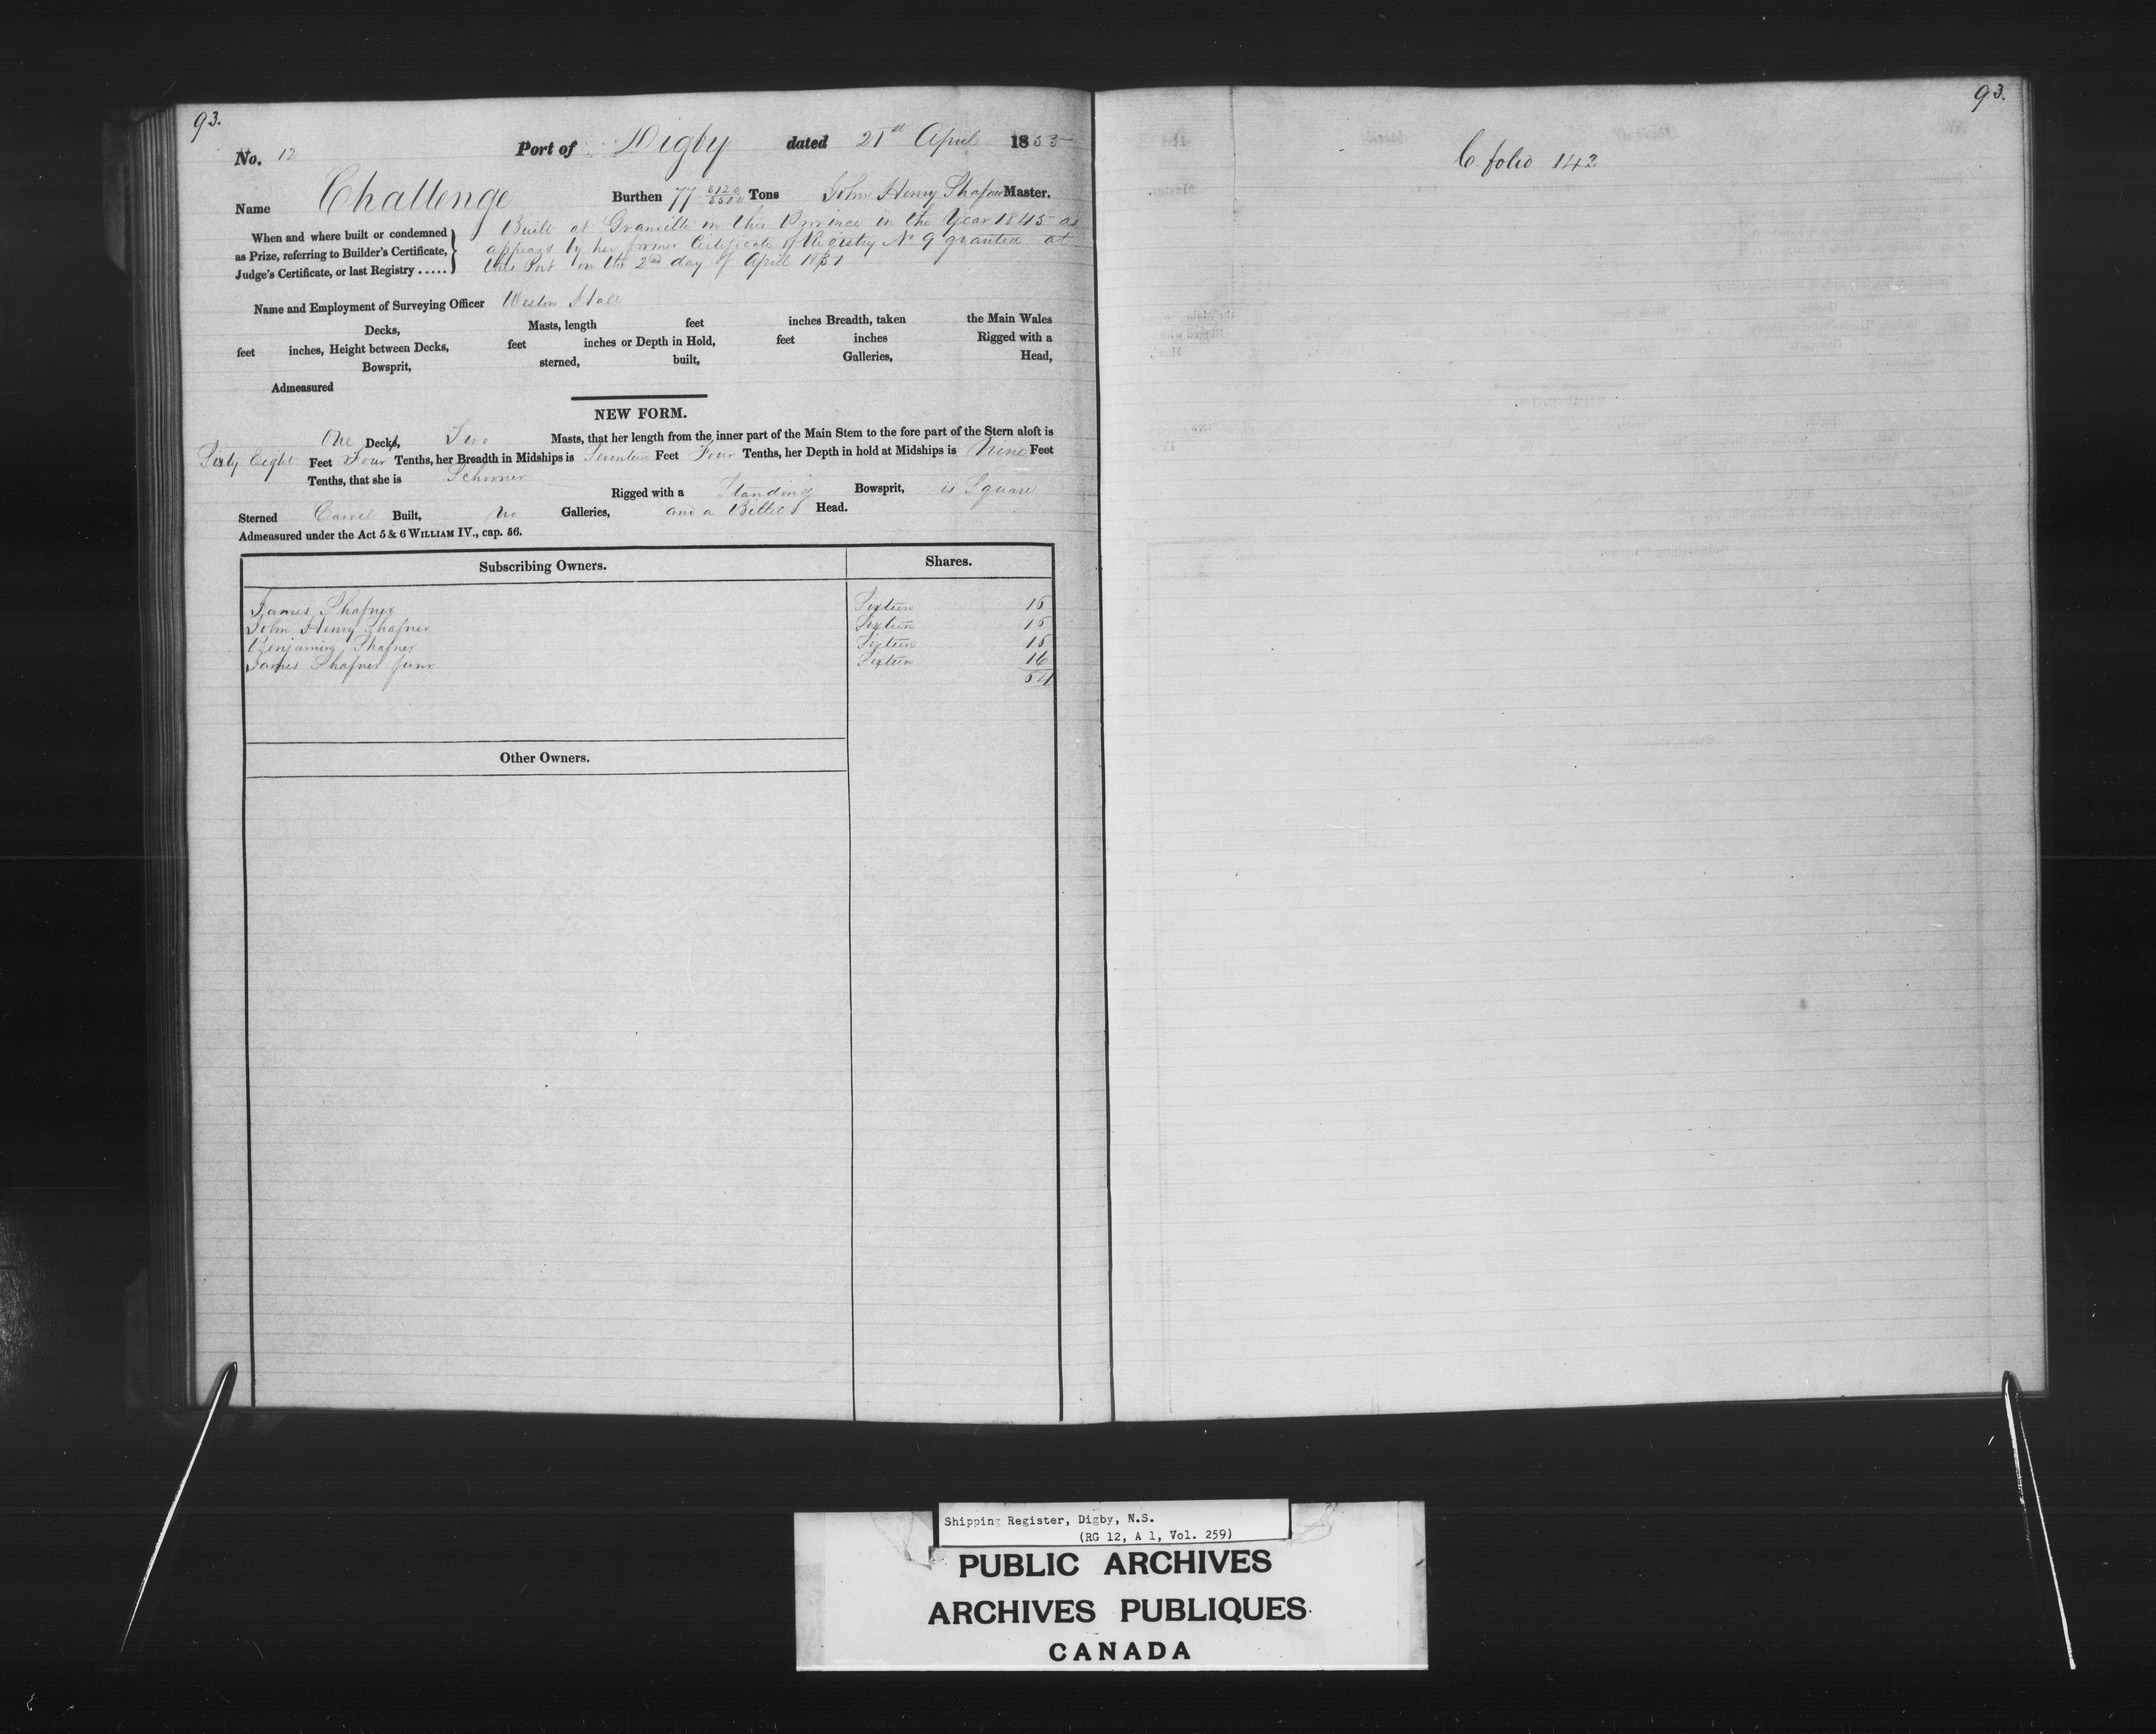 93.
No. 12 Port of Digby dated 21st April 1853
Name Challenge Burthen 77 Tons John Henry Shafner Master.
When and where built or condemned
as Prize, referring to Builder's Certificate,
Judge's Certificate, or last Registry .....
Built at Granville in this Province in the Year 1845 as
appears by her former Certificate of Registry No 9 granted at
this Port on the 2nd day of April 1851
Name and Employment of Surveying Officer Weston Hall
Decks, Masts, length feet inches Breadth, taken the Main Wales
feet inches, Height between Decks, feet inches or Depth in Hold, feet inches Rigged with a
Bowsprit, sterned, built, Galleries, Head,
Admeasured
NEW FORM.
One Decks, Two Masts, that her length from the inner part of the Main Stem to the fore part of the Stern aloft is
Sixty Eight Feet Four Tenths, her Breadth in Midships is Seventeen Feet Four Tenths, her Depth in hold at Midships is Nine Feet
Tenths, that she is Schooner
Rigged with a Standing Bowsprit, is Square
Sterned Carvel Built, no Galleries, and a Billet Head.
Admeasured under the Act 5 & 6 WILLIAM IV., cap. 56.
Subscribing Owners. Shares.
James Shafner Sixteen 16
John Henry Shafner Sixteen 16
Benjaming Shafner Sixteen 16
James Shafner Junr Sixteen 16
64
Other Owners.
93.
C. folio 142
Shipping Register, Digby, N.S.
(RG 12, A 1, Vol. 259)
PUBLIC ARCHIVES
ARCHIVES PUBLIQUES
CANADA